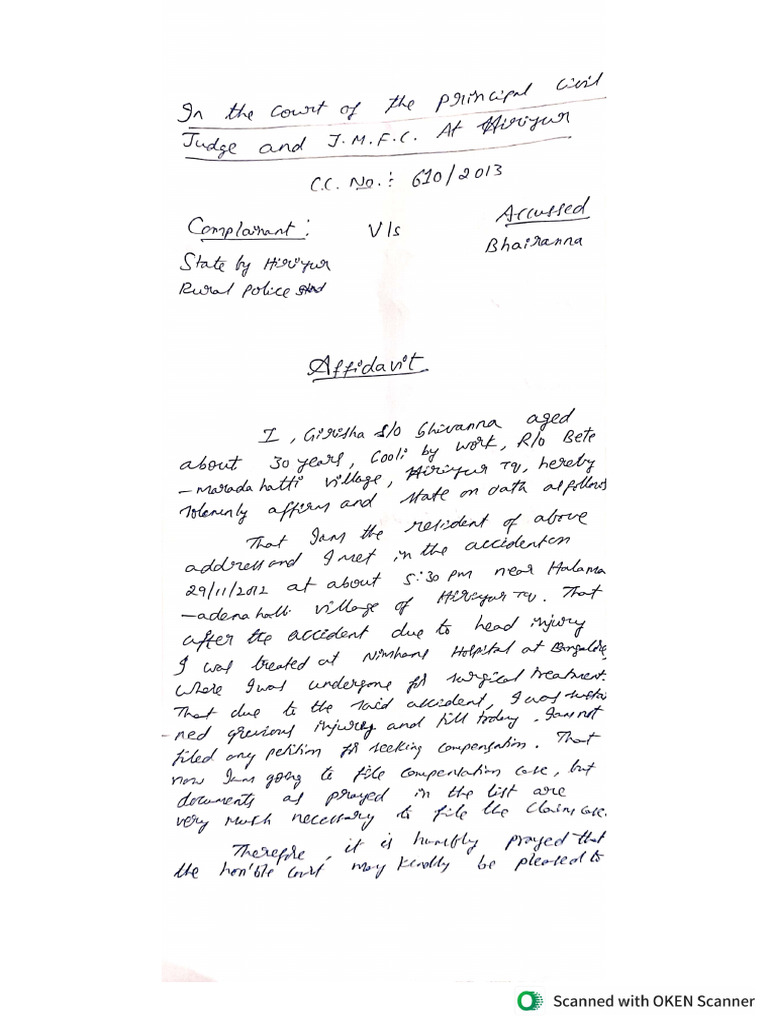 In the court of the principal civil
Judge and J.M.F.C. At Hiriyur
C.C. No.: 610/2013
Complainant: V/s Accussed
Bhairanna
State by Hiriyur
Rural police
Affidavit
I, Girisha S/o Shivanna aged
about 30 years, Cooli by work, R/o Bete
-marada hatti village, Hiriyur Tq, hereby
solemnly affirm and state on oath as follows
That I am the resident of above
address and I met in the accident on
29/11/2012 at about 5:30 pm near Halama
-adenahalli village of Hiriyur Tq. That
after the accident due to head injury
I was treated at Nimhans Hospital at Bangalore,
where I was undergone for surgical treatment.
That due to the said accident, I was sustai
-ned grevious injury and till today, I am not
filed any petition for seeking compensation. That
now I am going to file compensation case, but
documents as prayed in the list are
very much necessary to file the claim case.
Therefore, it is humbly prayed that
the hon'ble court may kindly be pleased to
Scanned with OKEN Scanner